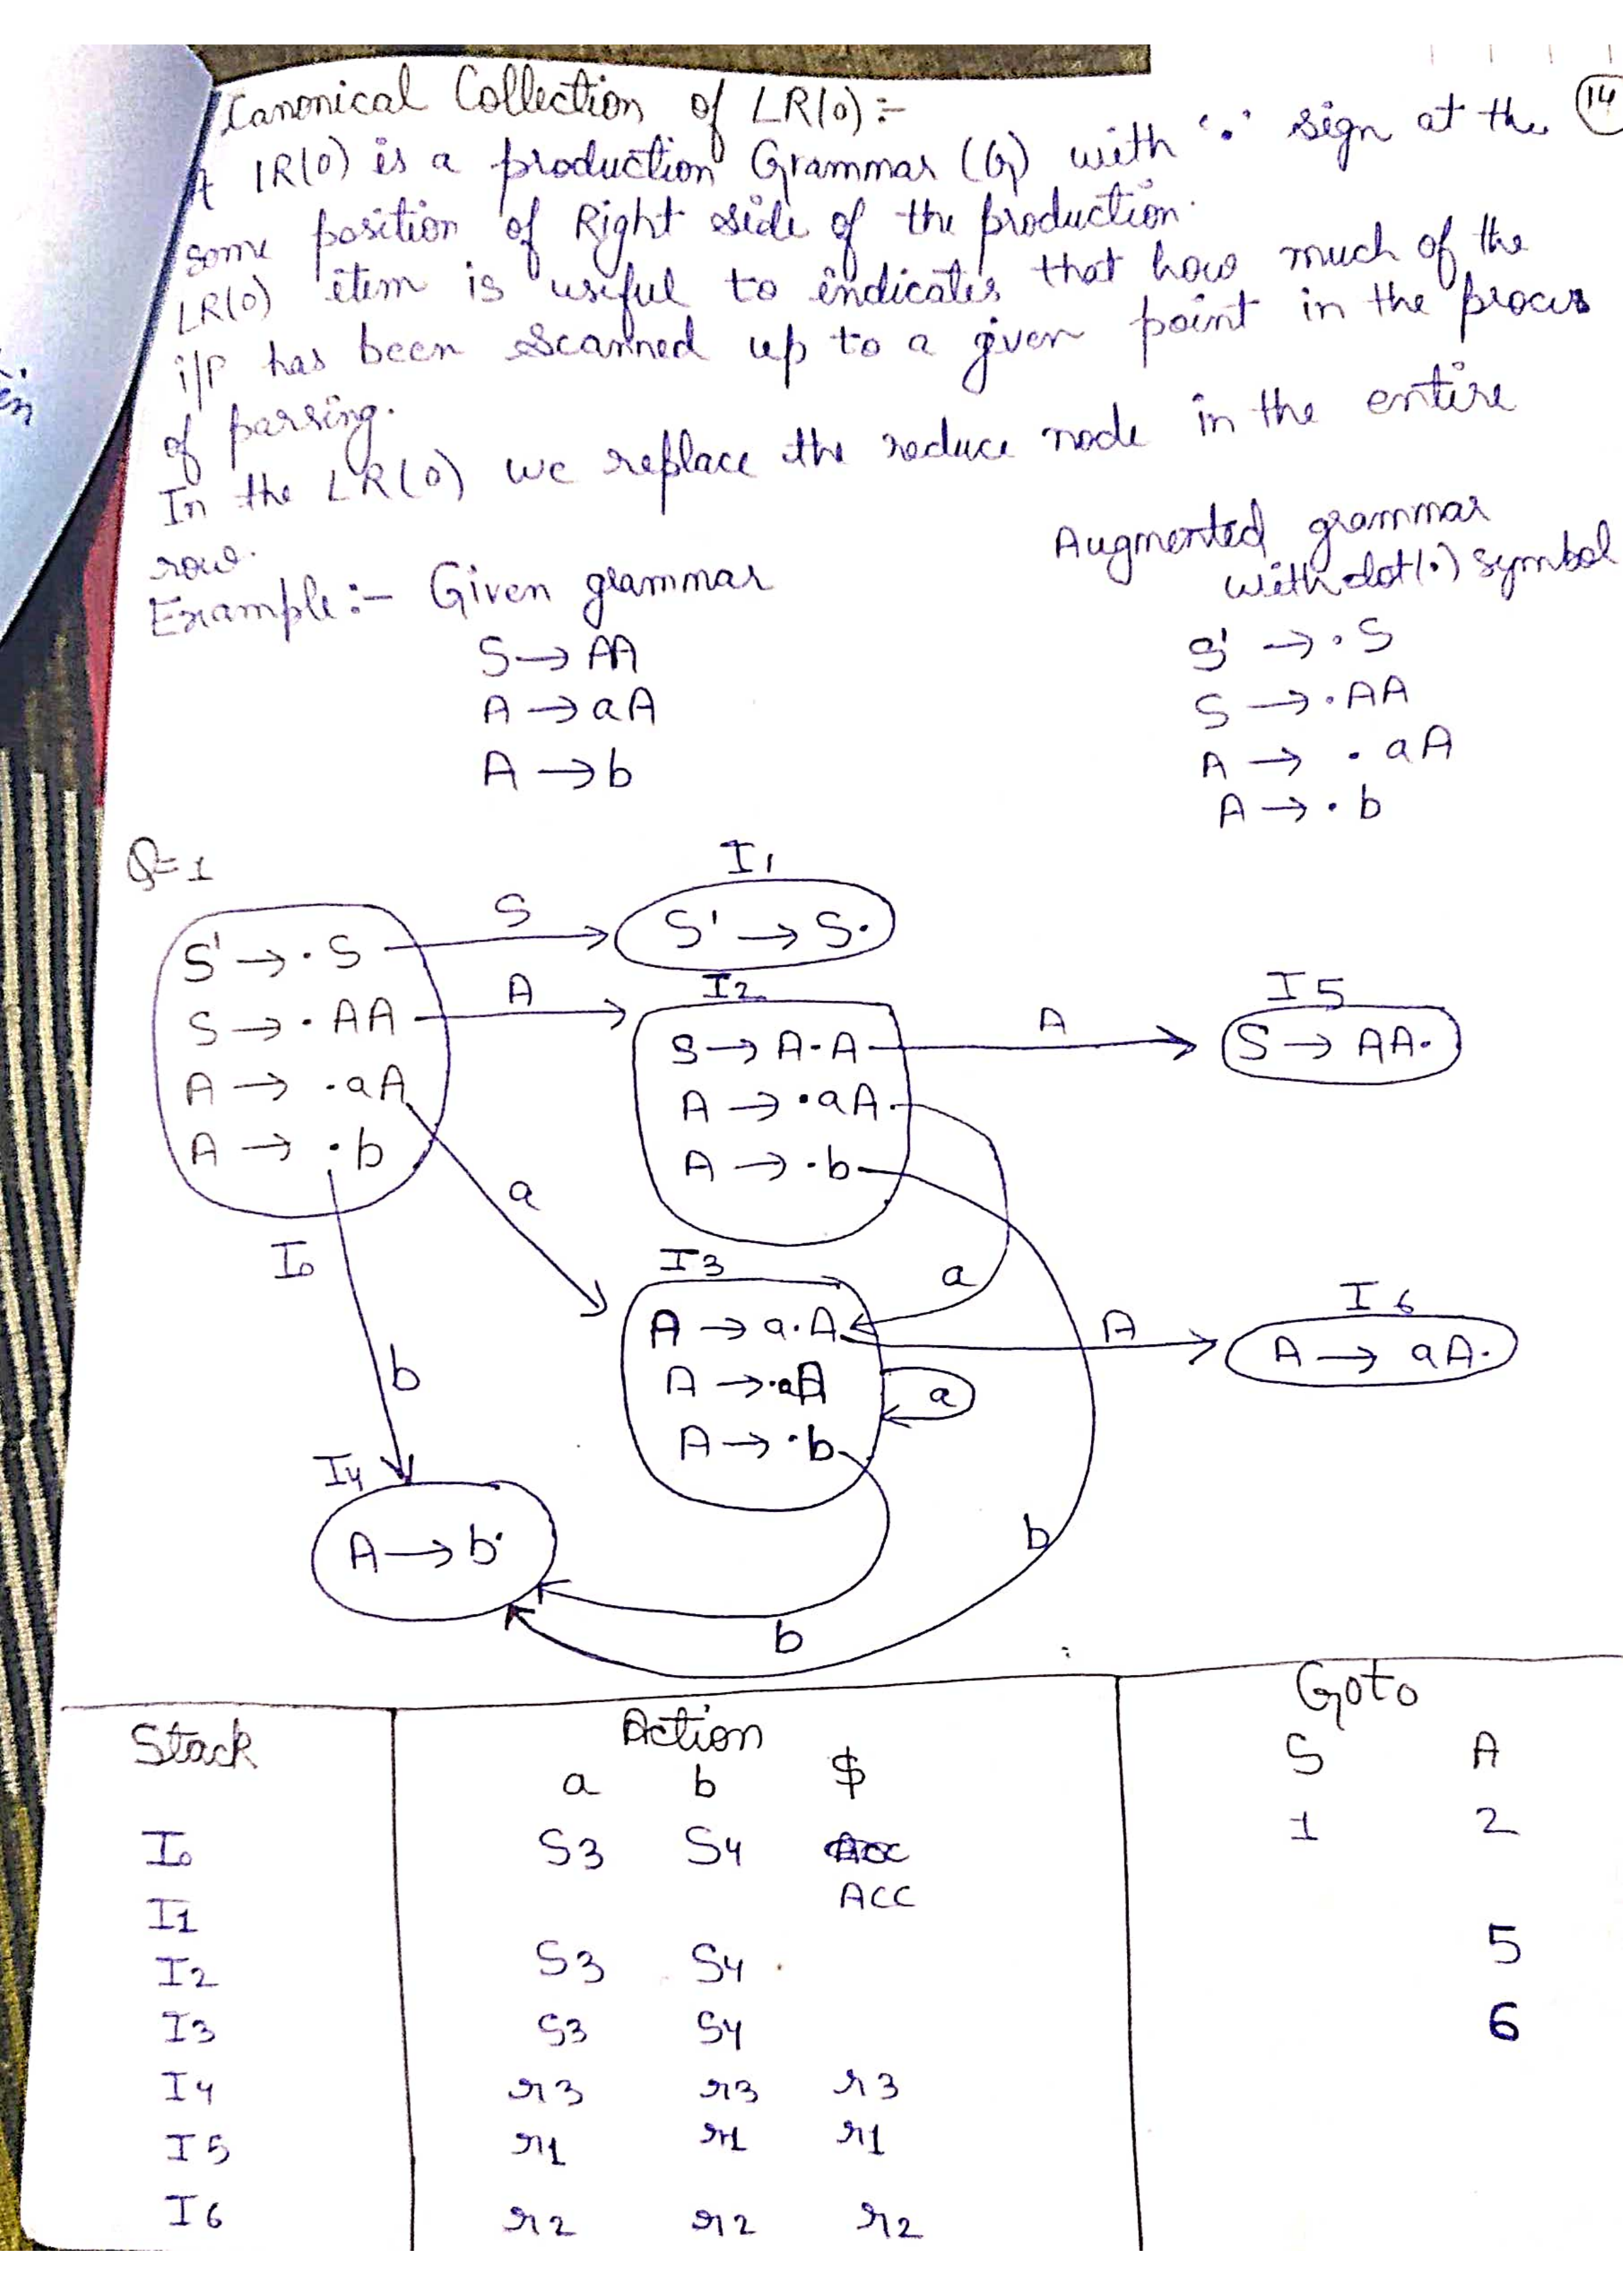 Canonical Collection of LR(0) :-
14
A LR(0) is a production Grammar (G) with '.' sign at the
some position of Right side of the production.
LR(0) item is useful to indicates that how much of the
i/p has been scanned up to a given point in the process
of parsing.
In the LR(0) we replace the reduce node in the entire
row.
Example :- Given grammar
Augmented grammar
with dot(.) symbol
S → AA
A → aA
A → b
S' → .S
S → .AA
A → .aA
A → .b
Q=1
S' → .S
S → .AA
A → .aA
A → .b
I0
S
I1
S' → S.
A
I2
S → A.A
A → .aA
A → .b
A
I5
S → AA.
a
I3
A → a.A
A → .aA
A → .b
a
a
A
I6
A → aA.
b
I4
A → b.
b
b
Stack Action Goto
a b $ S A
I0 S3 S4 1 2
I1 ACC
I2 S3 S4 5
I3 S3 S4 6
I4 r3 r3 r3
I5 r1 r1 r1
I6 r2 r2 r2